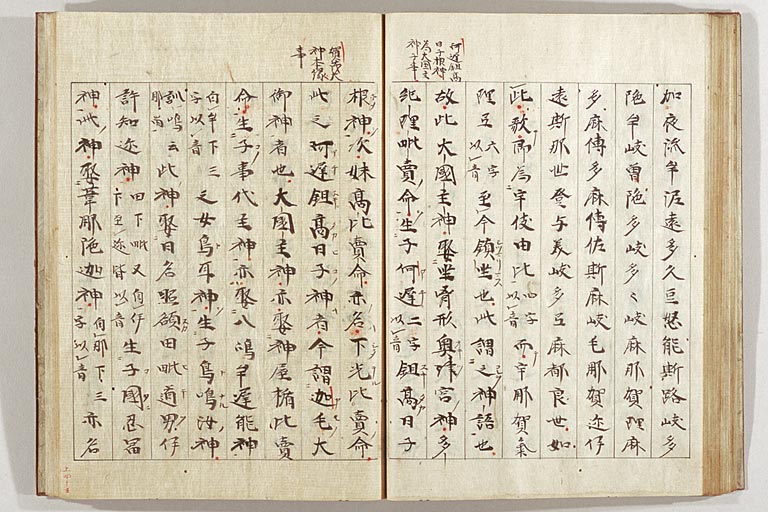 何遅鉏高
日子根神
為大国主
神子事
加夜流牟泥遠多久豆怒能斯路岐多
陁牟岐曽陁多岐多々岐麻那賀理麻
多麻傳多麻傳佐斯麻岐毛那賀迩伊
遠斯那世登与美岐多弖麻都良世如
此歌即為宇伎由比四字以音而宇那賀氣
理弖六字以音至今鎮坐也此謂之神語也
故此大國主神娶坐胷形奥津宮神多
紀理毗賣命生子阿遅二字以音鉏髙日子
神本縁
事
根神次妹髙比賣命亦名下光比賣命
此之阿遅鉏髙日子神者今謂迦毛大
御神者也大國主神亦娶神屋楯比賣
命生子事代主神亦娶八嶋牟遅能神
自牟下三字以音之女鳥耳神生子鳥鳴海神
訓鳴云那留此神娶日名照額田毗道男伊
許知迩神田下毗又自伊下至迩皆以音生子國忍冨
神此神娶葦那陁迦神自那下三字以音亦名